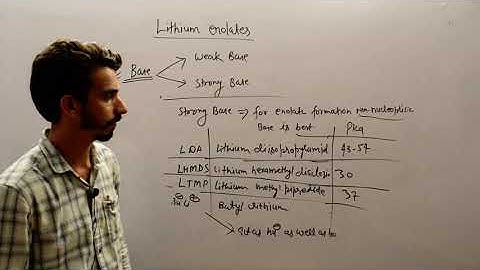 Lithium enolates
Base
Weak Base
Strong Base
Strong Base ⇒ for enolate formation non-nucleophilic
Base is best
Pka
LDA Lithium diisopropylamid
LHMDS Lithium hexamethyl 30
LTMP Lithium 37
Butyl lithium
as well as